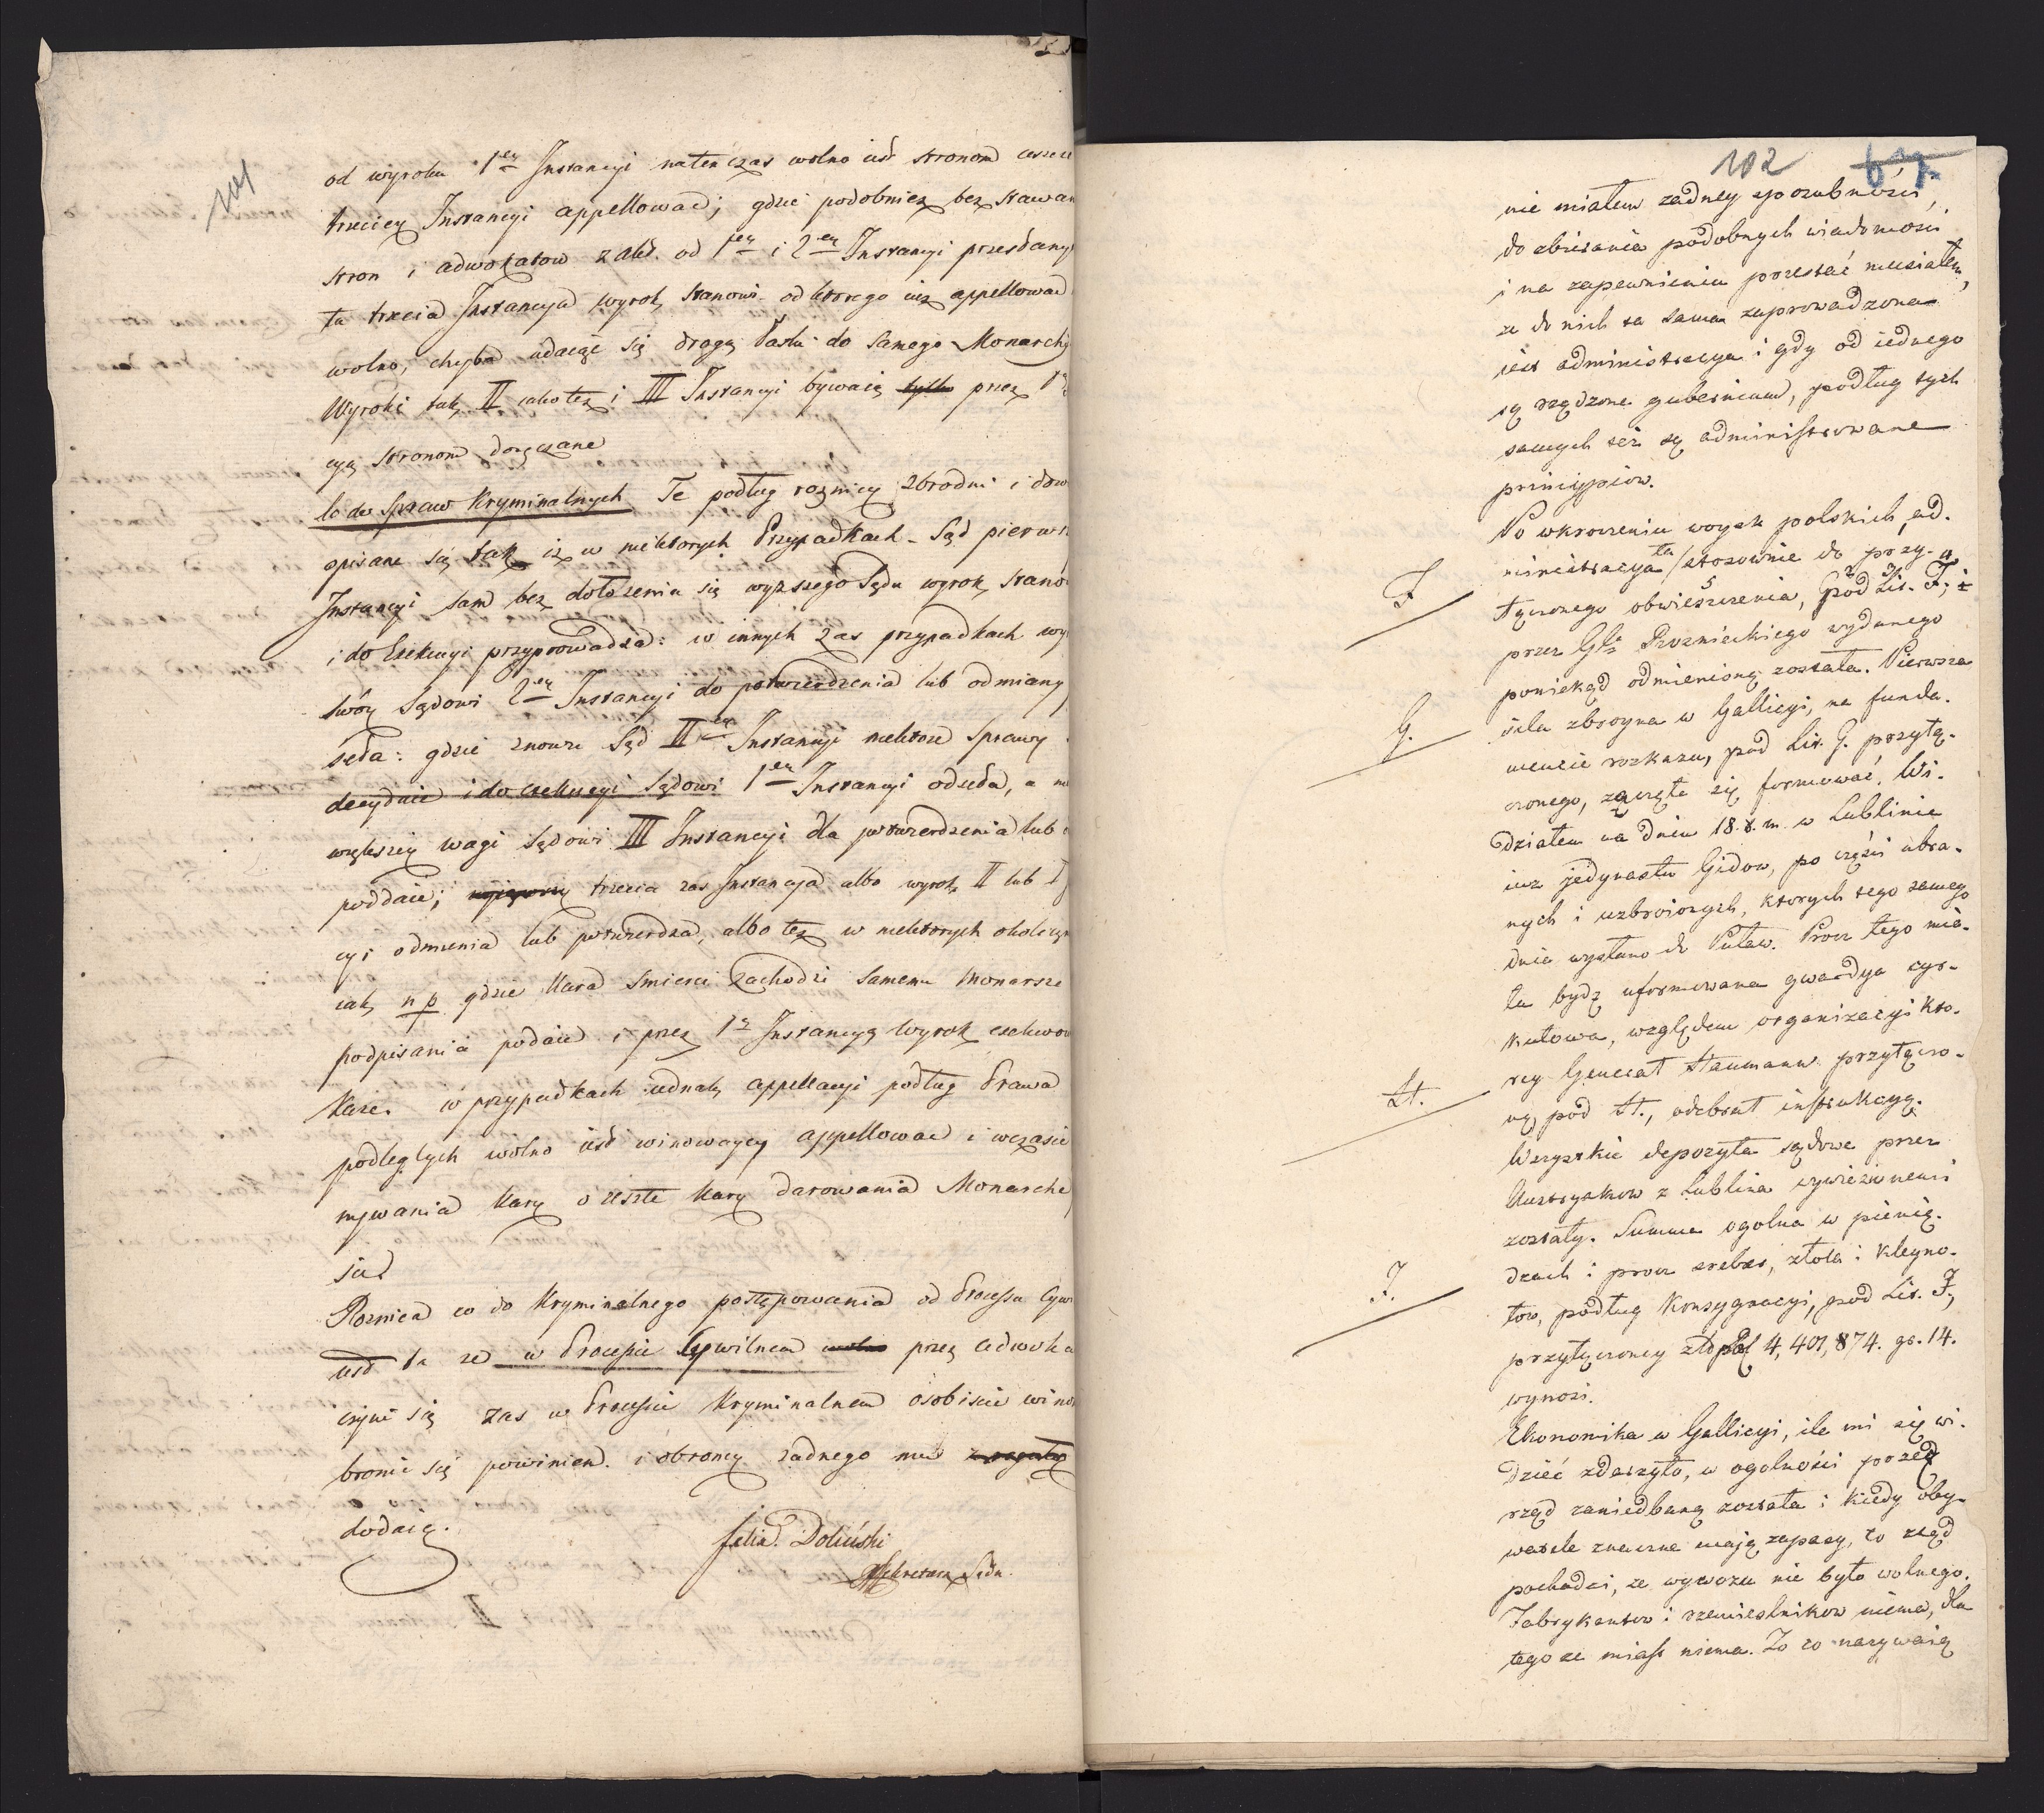 101
od wyroku 1ey Instancyi natenczas wolno iest stronom ieszcze
trzeciey Instancyi appellować; gdzie podobnież bez stawan
stron i adwokatow z akt. od 1ey i 2ey Instancyi przesłany
ta trzecia Instancya wyrok stanowi od ktorego iuż appellować
wolno, chyba udaiąc się drogą łaski do samego Monarchy
Wyroki tak II iako też i III Instancyi bywaią tylko przez 1ą
cyą stronom doręczane
Co do Spraw Kryminalnych Te podług rożnicy zbrodni i dow
opisane są tak iż w niektorych Przypadkach Sąd pierwsz
Instancyi sam bez dołożenia się wyższego Sądu wyrok stano
i do Exekucyi przyprowadza: w innych zas przypadkach wy
swóy Sądowi 2ey Instancyi do potwierdzenia lub odmiany
seła: gdzie znowu Sąd IIey Instancyi niektore Sprawy
decyduie i do exekucyi Sądowi 1ey Instancyi odseła, a n
większey wagi Sądowi III Instancyi dla potwierdzenia lub
poddaie; trzecia zas Instancya albo wyrok II lub I
cyi odmienia lub potwierdza, albo też w niektorych okoliczn
iak n p gdzie kara smierci zachodzi samemu Monarsze
podpisania podaie i przez 1ą Instancyą wyrok exekwow
każe. w przypadkach iednak appellacyi podług Prawa
podległych wolno iest winowaycy appellować i wczasie
mywania kary o resztę kary darowania Monarchę
sić
Rożnica co do kryminalnego postępowania od Processu Cyw
iest ta że w Processie Cywilnem wolno przez adwoka
czyni się zas w Processie kryminalnem osobiscie wino
bronić się powinien i obroncy żadnego mu
dodaią.
Felix Doliński
Sekretarz Sądu.
102
nie miałem żadney sposobności,
do zbierania podobnych wiadomości
i na zapewnieniu przestać musiałem,
że do nich ta sama zaprowadzona
iest administracya i gdy od iednego
są rządzone gubernium, podług tych
samych też są administrowane
principiow.
Po wkroczeniu woysk polskich, ad.
ministracya ta / stosownie do przy-
F
łączonego obwieszczenia, pod Lit. F,
przez Gła Roznieckiego wydanego
poniekąd odmienioną została. Pierwsza
siła zbroyna w Gallicyi, na funda.
G.
mencie rozkazu, pod Lit. G. przyłą-
czonego, zaczęła się formować. Wi-
działem na dniu 18. t. m. w Lublinie
iuż jedynastu Gidow, po części ubra-
nych i uzbroionych, ktorych tego samego
dnia wysłano do Puław. Procz tego mia-
ła bydź uformowana gwardya cyr-
kułowa, względem organizacyi kto-
rey Generał Haumann przyłączo-
H.
ną pod H., odebrał instrukcyą.
Wszystkie depozyta sądowe przez
Austryakow z Lublina wywiezionemi
zostały. Summa ogolna w pienią-
dzach i procz srebra, złota i kleyno-
J.
tow, podług konsygnacyi, pod Lit. J,
przyłączoney złł pol 4,401,874. gr. 14.
wynosi.
Ekonomika w Gallicyi, ile mi się wi-
dzieć zdarzyło, w ogolności przez
rząd zaniedbaną została i kiedy oby-
watele znaczne maią zapasy, to ztąd
pochodzi, że wywozu nie było wolnego.
Fabrykantow i rzemieslnikow niema, dla
tego że miast niema. To co nazywaią